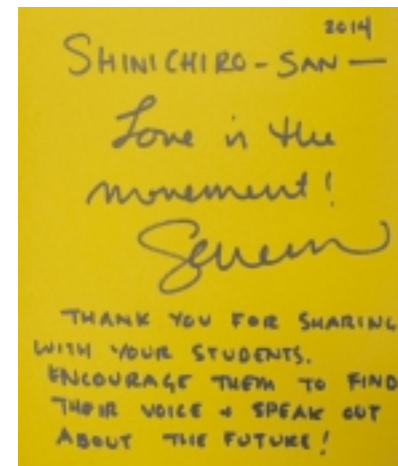 2014
SHINICHIRO-SAN —
Love is the
movement!
Severn
THANK YOU FOR SHARING
WITH YOUR STUDENTS.
ENCOURAGE THEM TO FIND
THEIR VOICE + SPEAK OUT
ABOUT THE FUTURE!